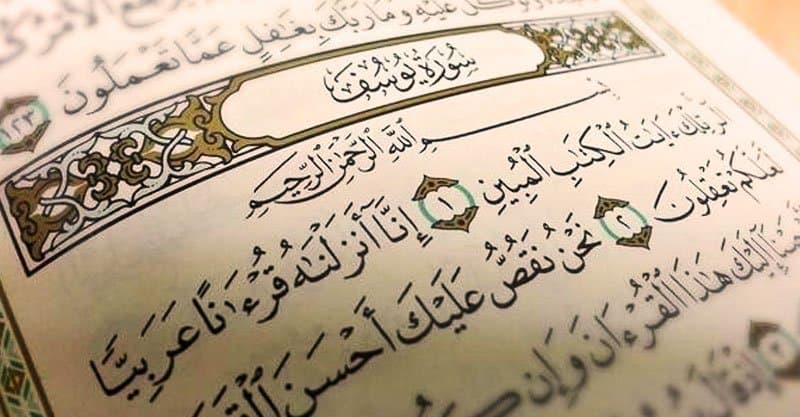 وَتَوَكَّلْ عَلَيْهِ وَمَا رَبُّكَ بِغَٰفِلٍ عَمَّا تَعْمَلُونَ ١٢٣
سُورَةُ يُوسُفَ
بِسْمِ ٱللَّهِ ٱلرَّحْمَٰنِ ٱلرَّحِيمِ
الٓر تِلْكَ ءَايَٰتُ ٱلْكِتَٰبِ ٱلْمُبِينِ ١ إِنَّآ أَنزَلْنَٰهُ قُرْءَٰنًا عَرَبِيًّا
لَّعَلَّكُمْ تَعْقِلُونَ ٢ نَحْنُ نَقُصُّ عَلَيْكَ أَحْسَنَ
إِلَيْكَ هَٰذَا ٱلْقُرْءَانَ وَإِن
٣ إِذْ قَالَ